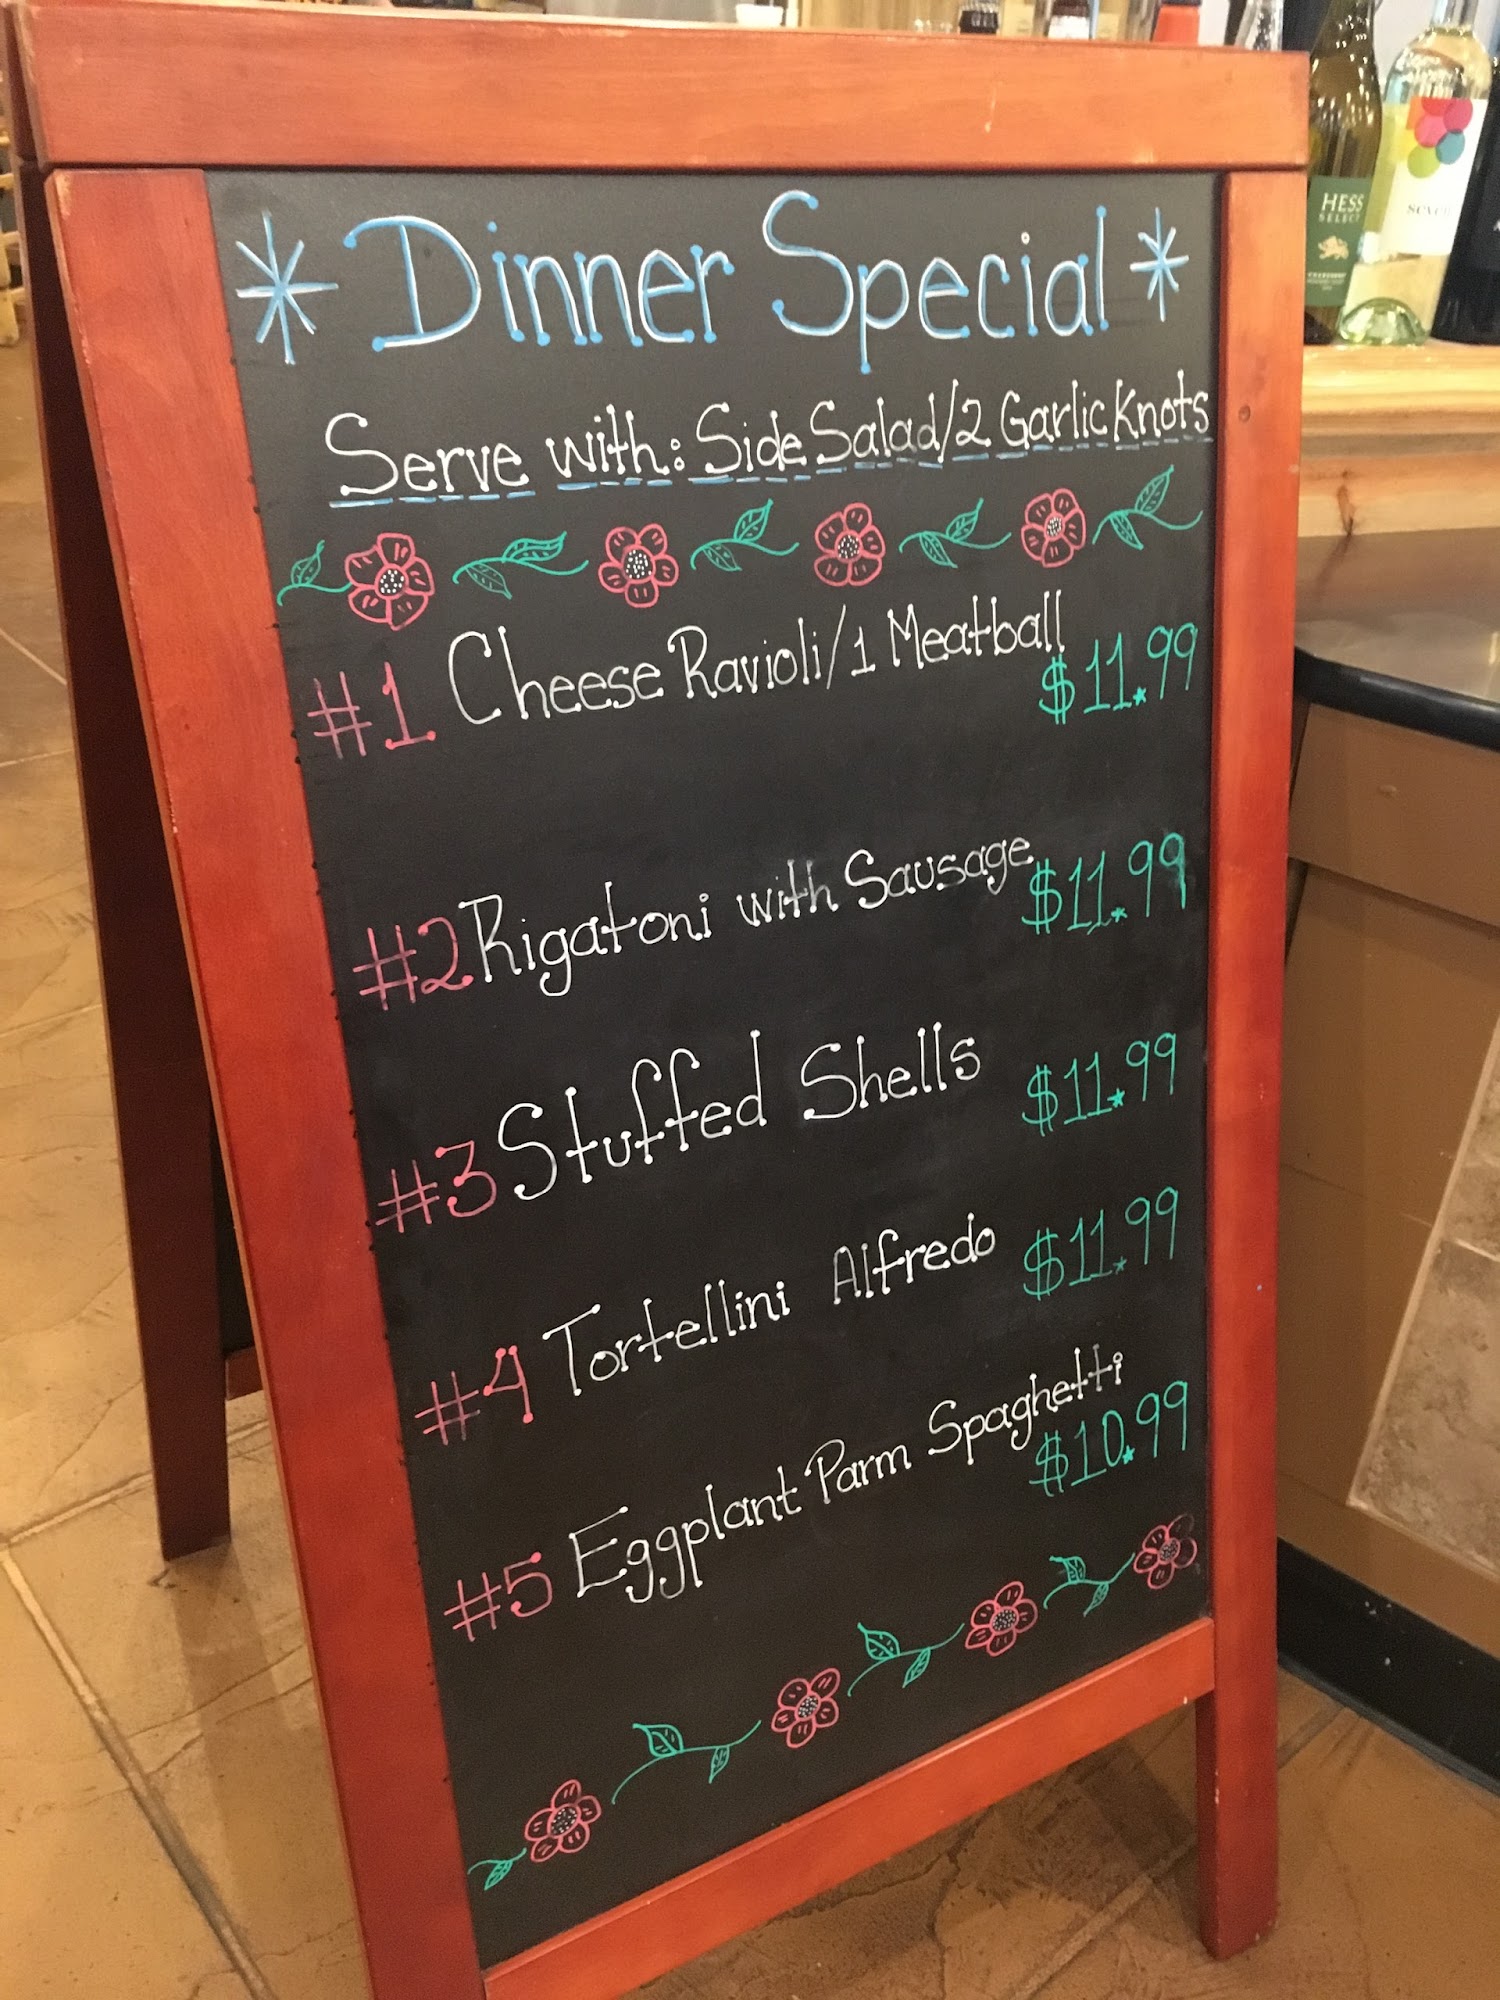 * Dinner Special *
Serve with: Side Salad/2 Garlic Knots
#1 Cheese Ravioli/1 Meatball
$11.99
#2 Rigatoni with Sausage $11.99
#3 Stuffed Shells $11.99
#4 Tortellini Alfredo $11.99
#5 Eggplant Parm Spaghetti
$10.99
HESS
SELECT
CHARDONNAY